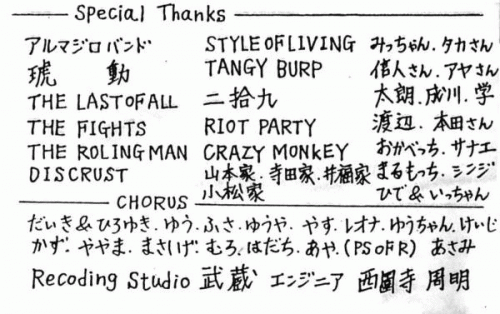 Special Thanks
アルマジロバンド STYLE OF LIVING みっちゃん.タカさん
琥動 TANGY BURP 信人さん.アヤさん
THE LAST OF ALL 二拾九 太朗.成川.学
THE FIGHTS RIOT PARTY 渡辺.本田さん
THE ROLING MAN CRAZY MONKEY おかべっち.サナエ
DISCRUST 山本家.寺田家.井福家 まるもっち.シンジ
小松家 ひで&いっちゃん
CHORUS
だいき&ひろゆき.ゆう.ふさ.ゆうや.やす.レオナ.ゆうちゃん.けいじ
かず.ややま.まさしげ.むろ.はだち.あや.(PS OF R) あさみ
Recoding Studio 武蔵 エンジニア 西園寺 周明